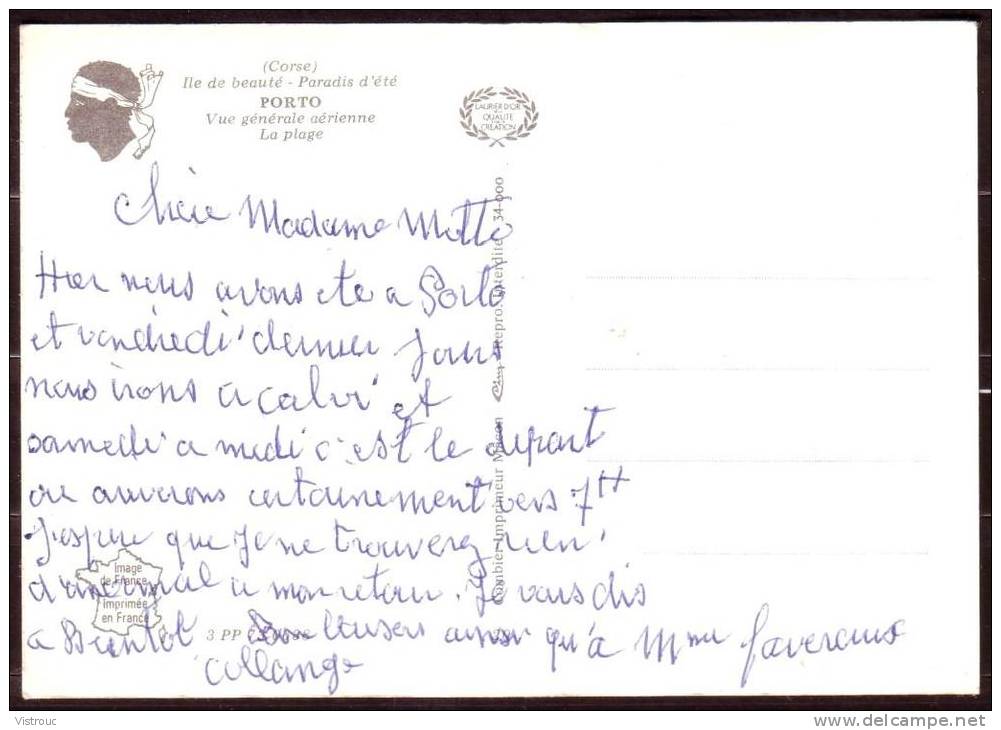 (Corse)
Ile de beauté - Paradis d'été
PORTO
Vue générale aérienne
La plage
LAURIER D'OR
DE LA
QUALITÉ
CRÉATION
Chère Madame Motto
Hier nous avons ete a Porto
et vendredi dernier jour
nous irons a calvi et
samedi a midi c'est le depart
on arriverons certainement vers 7H
J'espere que Je ne trouverez rien
d'anormal a mon retour. Je vous dis
a Bientot Bons baisers ainsi qu'à Mme
Collange
Combier Imprimeur Mâcon
Repro. Interdite 34-000
Image
de France
Imprimée
en France
3 PP
Vistrouc
delcampe.net